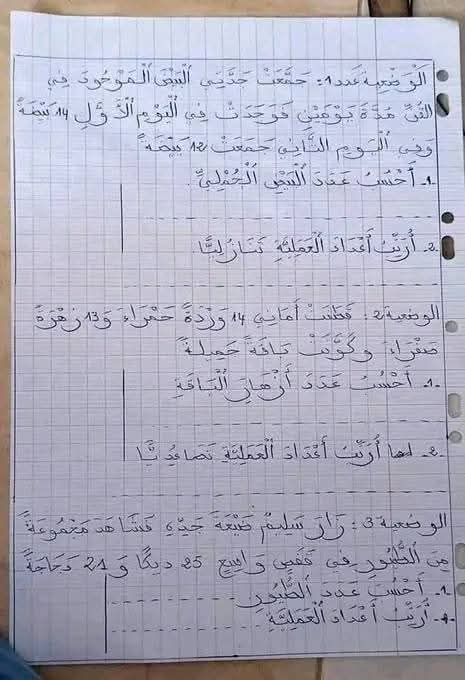 الوَضعِية عَدد 1: جَمَّعَتْ جَدَّتِي البَيْضَ المَوْجُودَ فِي
القُنِّ مُدَّةَ يَوْمَيْنِ فَوَجَدَتْ فِي الْيَوْمِ الأَوَّلِ 14 بَيْضَةً
وفِي الْيَومِ الثَّانِي جَمَعَتْ 12 بَيْضَةً
1- أَحْسُبُ عَدَدَ الْبَيْضِ الْجُمْلِيِّ.
2- أُرَتِّبُ أَعْدَادَ الْعَمَلِيَّةِ تَنَازُلِيًّا
الوضعية 2: قَطَفَتْ أَمَانِي 14 وَرْدَةً حَمْرَاءَ وَ 13 زَهْرَةً
صَفْرَاءَ وكَوَّنَتْ بَاقَةً جَمِيلَةً
1- أَحْسُبُ عَدَدَ أَزْهَارِ الْبَاقَةِ
2- أُرَتِّبُ أَعْدَادَ الْعَمَلِيَّةِ تَصَاعُدِيًّا
الوضعية 3: زَارَ سَلِيمٌ ضَيْعَةَ جَدِّهِ فَشَاهَدَ مَجْمُوعَةً
مِنَ الطُّيُورِ فِي قَفَصٍ وَاسِعٍ 25 دِيكًا وَ 21 دَجَاجَةً
1- أَحْسُبُ عَدَدَ الطُّيُورِ
أُرَتِّبُ أَعْدَادَ الْعَمَلِيَّةِ